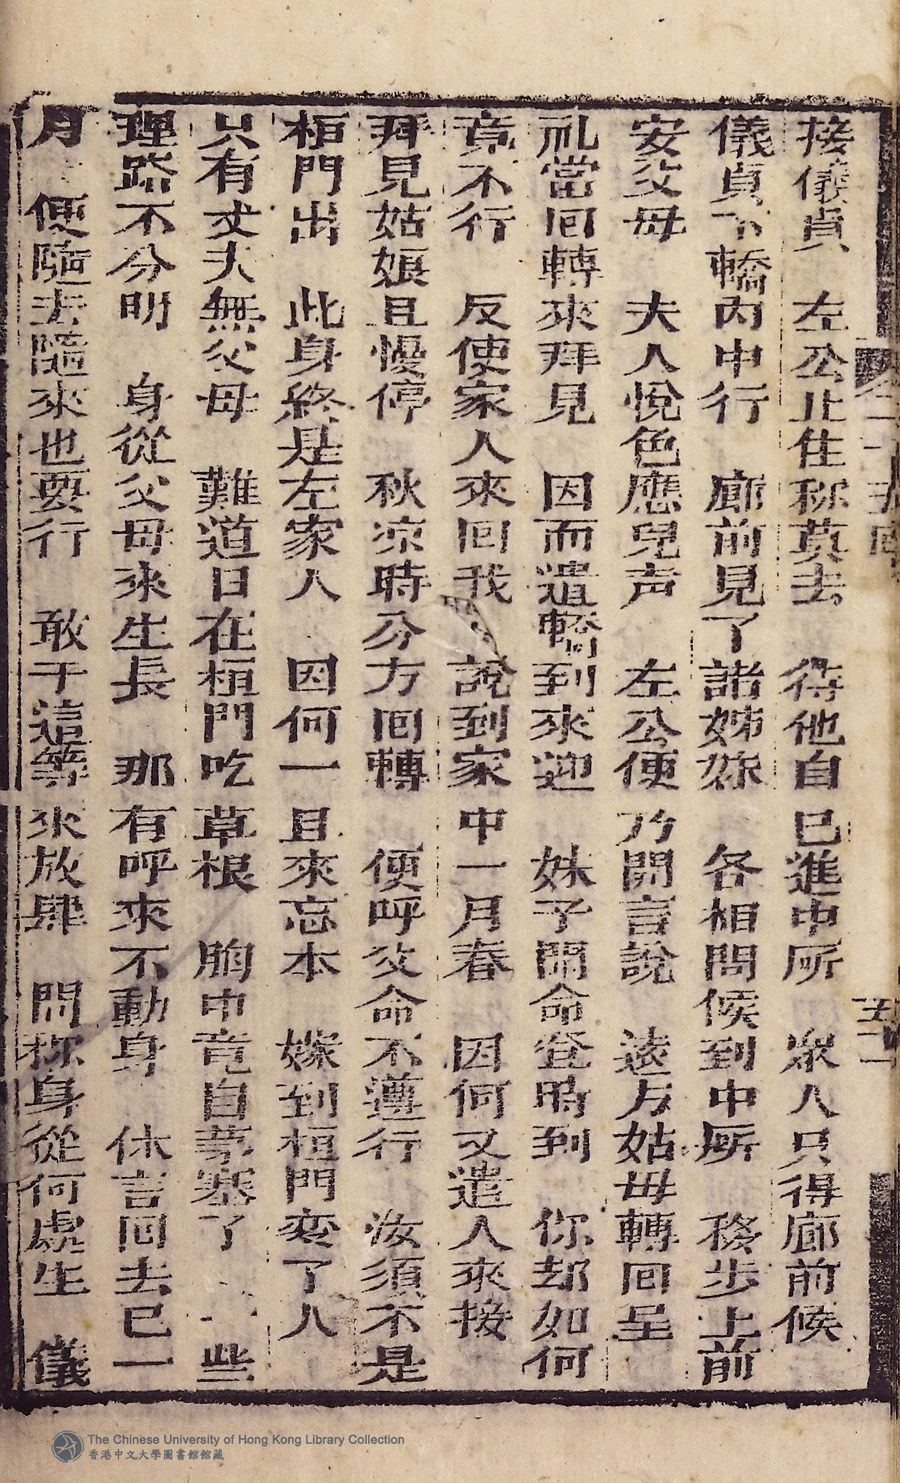 接儀貞　左公止住称莫去　待他自已進中所　衆人只得廊前候
儀貞下轎内中行　廊前見了諸姊妹　各相問候到中所　移步上前
安父母　夫人悅色應兒声　左公便乃開言說　遠方姑母轉回呈
礼當回轉來拜見　因而遣轎到來迎　妹子聞命登時到　你却如何
竟不行　反使家人來回我　說到家中一月春　因何又遣人來接
拜見姑娘且慢停　秋凉時分方回轉　便呼父命不遵行　汝須不是
桓門出　此身終是左家人　因何一旦來忘本　嫁到桓門变了人
只有丈夫無父母　難道日在桓門吃草根　胸中竟自茅塞了　一些
理路不分明　身從父母來生長　那有呼來不動身　休言回去已一
月　便隨去隨來也要行　敢于這等來放肆　問称身從何處生　儀
五十一
The Chinese University of Hong Kong Library Collection
香港中文大學圖書館館藏